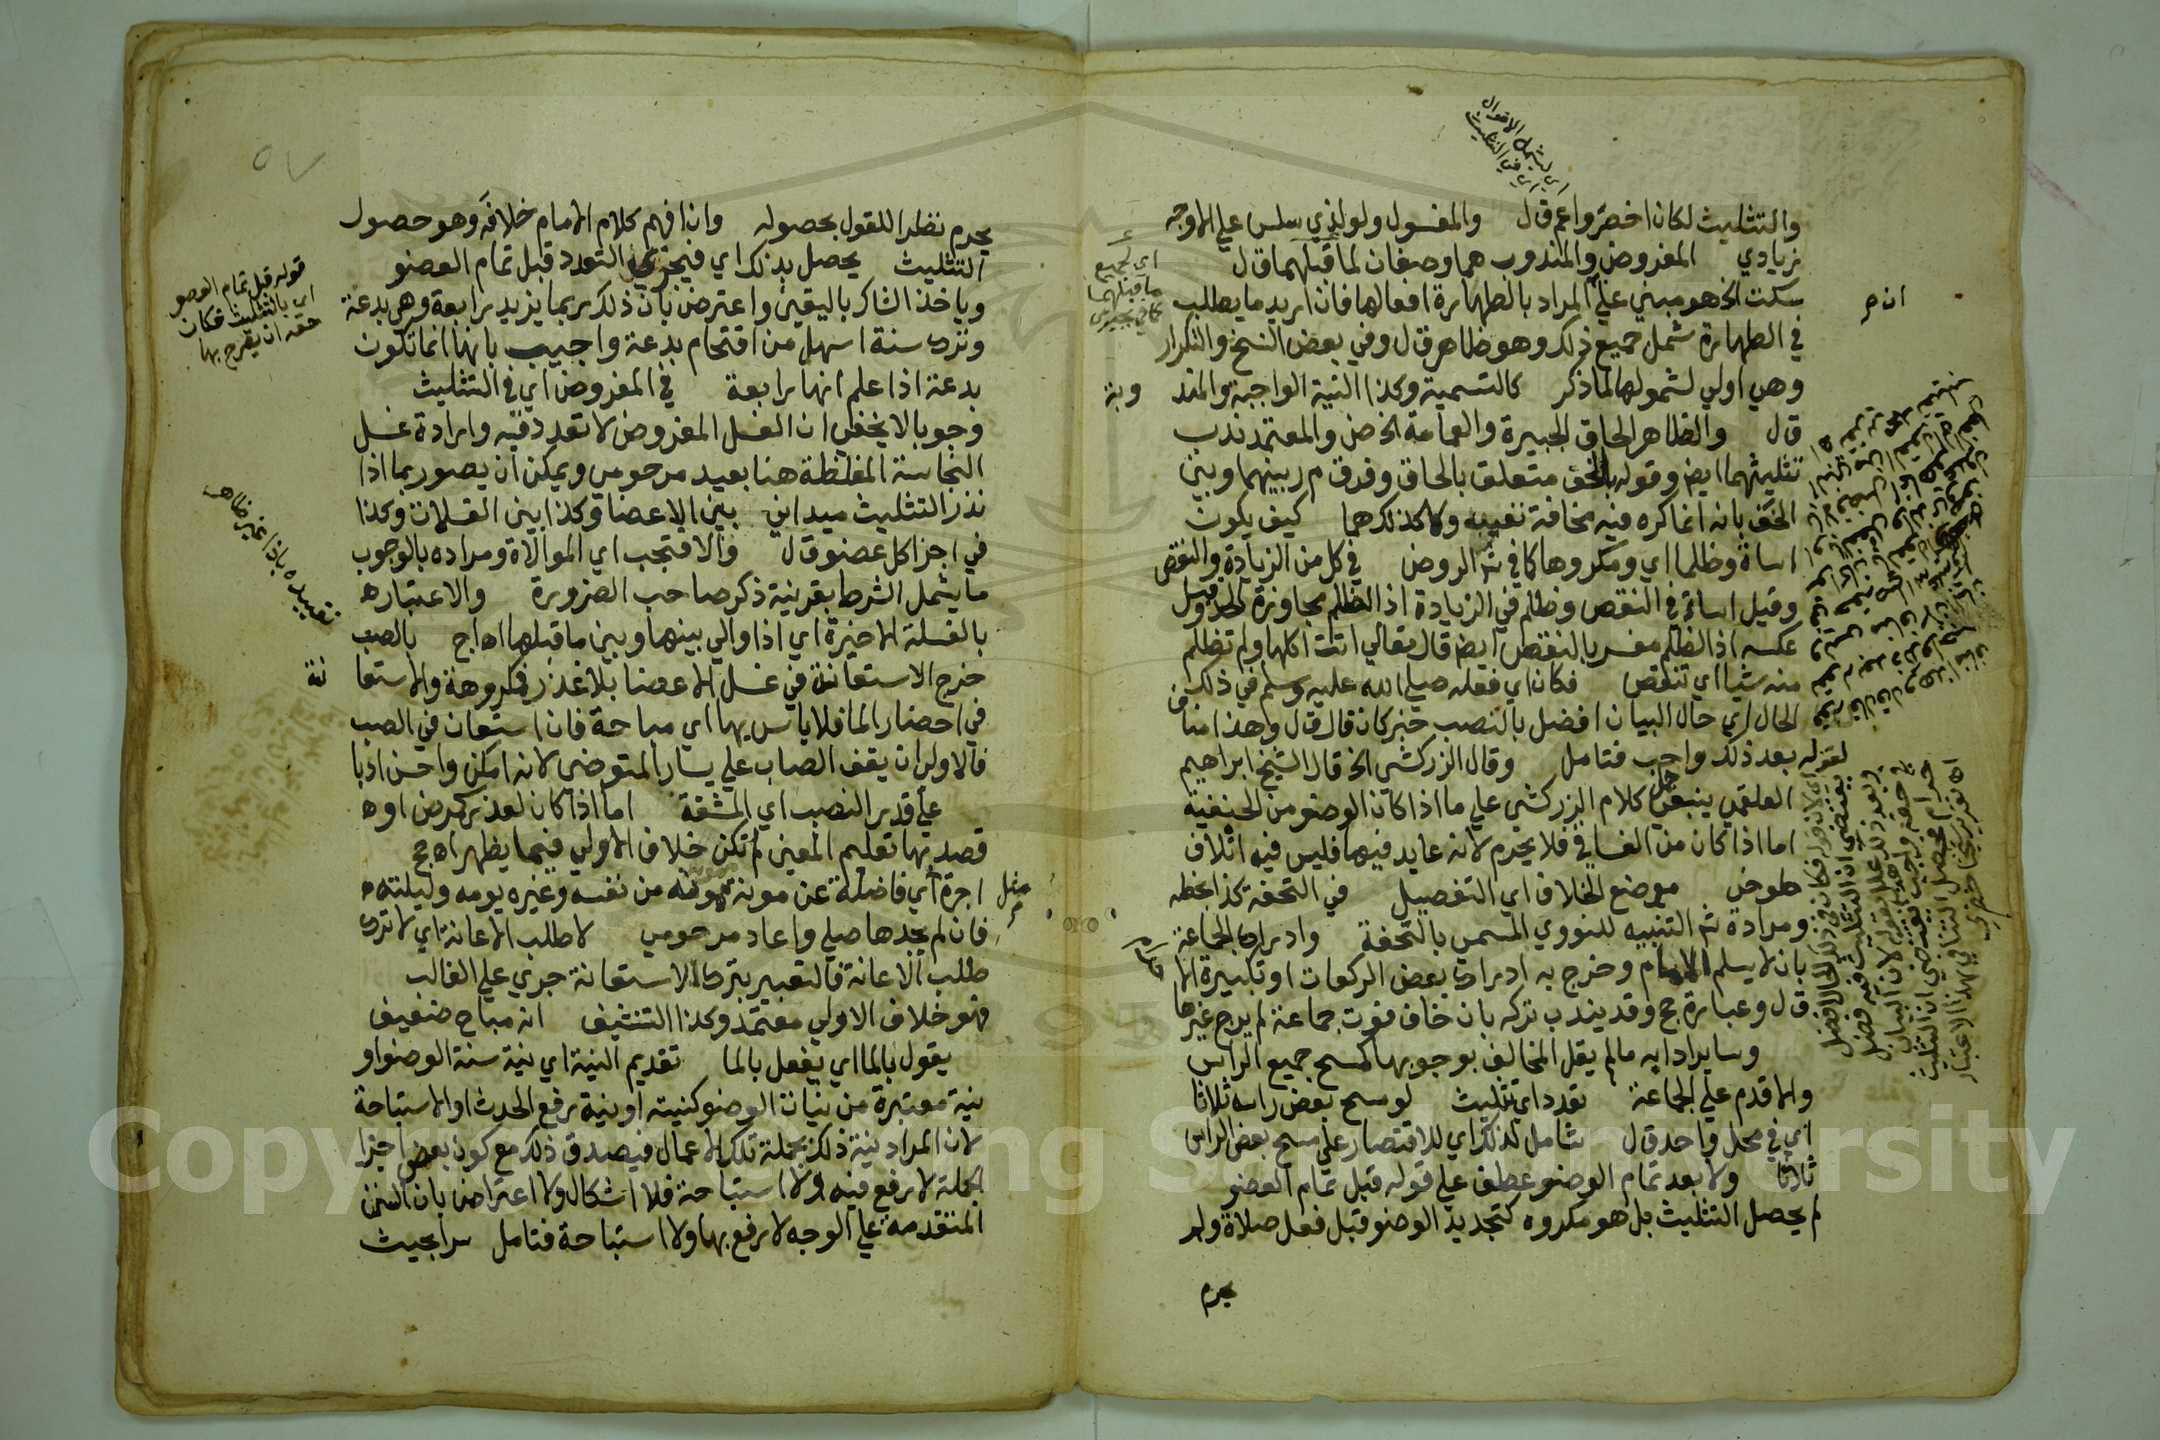 والتثليث لكان اخصر واعم ق ل والمغسول ولو لذي سلس علي الاوجه
زيادي المفروض والمندوب هما وصفان لما قبلهما ق ل
سكت الخ هو مبني علي المراد بالطهارة افعالها فان اريد ما يطلب
في الطهارة شمل جميع ذلك وهو ظاهر ق ل وفي بعض النسخ والتكرار
وهي اولي لشمولها لما ذكر كالتسمية وكذا النية الواجبة والمند وبة
ق ل والظاهر الحاق الجبيرة والعمامة الخ ض والمعتمد ندب
تثليثهما ايض وقوله بالخف متعلق بالحاق وفرق م ر بينهما وبين
الخف بانه انما كره فيه مخافة تعييبه ولا كذلك هما كيف يكون
اساة وظلما اي ومكروها كما في شر الروض في كل من الزيادة والنقص
وقيل اساءة في النقص وظلم في الزيادة اذ الظلم مجاوزة الحد وقيل
عكسه اذ الظلم مفسر بالنقص ايض قال تعالي اتت اكلها ولم تظلم
منه شيا اي تنقص فكان اي فعله صلي الله عليه وسلم في ذلك
الحال اي حال البيان افضل بالنصب خبر كان قال ق ل وهذا مناف
لقوله بعد ذلك واجب فتامل وقال الزركشي الخ قال الشيخ ابراهيم
العلقمي ينبغي حمل كلام الزركشي علي ما اذا كان الوضو من الحنفية
اما اذا كان من الفساقي فلا يحرم لانه عايد فيها فليس فيه اتلاف
ط وض موضع الخلاف اي التفصيل في التحفة كذا بخطه
ومراده ثم التنبيه للنووي المسمي بالتحفة وادراك الجماعة
بان لا يسلم الامام وخرج به ادراك بعض الركعات او تكبيرة الا
ق ل وعبارة حج وقد يندب تركه بان خاف فوت جماعة لم يرج غيرها
وساير ادابه مالم يقل المخالف بوجوبها كمسح جميع الراس
والا قدم علي الجماعة تعدد اي تثليث لو مسح بعض راسه ثلاثا
اي في محل واحد ق ل شامل لذلك اي للاقتصار علي مسح بعض الراس
ثلاثا ولا بعد تمام الوضو عطف علي قوله قبل تمام العضو
لم يحصل التثليث بل هو مكروه كتجديد الوضو قبل فعل صلاة ولم
يحرم
اي ليشمل الاقوال
اي في التثليث
اي لجميع
ما قبلهما
يحرم نظرا للقول بحصوله وان افهم كلام الامام خلافه وهو حصول
التثليث يحصل بذلك اي فيجزي التعدد قبل تمام العضو
وياخذ الشاك باليقين واعترض بان ذلك ربما يزيد رابعة وهي بدعة
وترك سنة اسهل من اقتحام بدعة واجيب بانها انما تكون
بدعة اذا علم انها رابعة في المفروض اي في التثليث
وجوبا لا يخفي ان الغسل المفروض لا تعدد فيه وارادة غسل
النجاسة المغلظة هنا بعيد مرحومي ويمكن ان يصور بما اذا
نذر التثليث ميداني بين الاعضا وكذا بين الغسلات وكذا
في اجزا كل عضو ق ل والا فتجب اي الموالاة ومراده بالوجوب
ما يشمل الشرط بقرينة ذكر صاحب الضرورة والاعتباره
بالغسلة الاخيرة اي اذا والي بينها وبين ما قبلها اه اج بالصب
خرج الاستعانة في غسل الاعضا بلا عذر فمكروهة والاستعا نة
في احضار الما فلا باس بها اي مباحة فان استعان في الصب
فالاولي ان يقف الصاب علي يسار المتوضي لانه امكن واحسن ادبا
علي قدر النصب اي المشقة اما اذا كان لعذر كمرض او ه
قصد بها تعليم المعين لم تكن خلاف الاولي فيما يظهر اه حج
اجرة اي فاضلة عن مونة ممونه من نفسه وغيره يومه وليلته ه
فان لم يجدها صلي واعاد مرحومي لا طلب الاعانة اي لا ترك
طلب الاعانة فالتعبير بترك الاستعانة جري علي الغالب
فهو خلاف الاولي معتمد وكذا التنشيف انه مباح ضعيف
يقول بالما اي يفعل بالما تقديم النية اي نية سنة الوضو او
نية معتبرة من نيات الوضو كنيته او نية رفع الحدث او الاستباحة
لان المراد نية ذلك بجملة تلك الاعمال فيصدق ذلك مع كون بعض اجزا
الجملة لا رفع فيه ولا استباحة فلا اشكال ولا اعتراض بان السنن
المتقدمة علي الوجه لا رفع بها ولا استباحة فتامل سرا بحيث
قوله قبل تمام العضو
اي بالتثليث فكان
حقه ان يصرح بها
تقييده باذا غير ظاهر